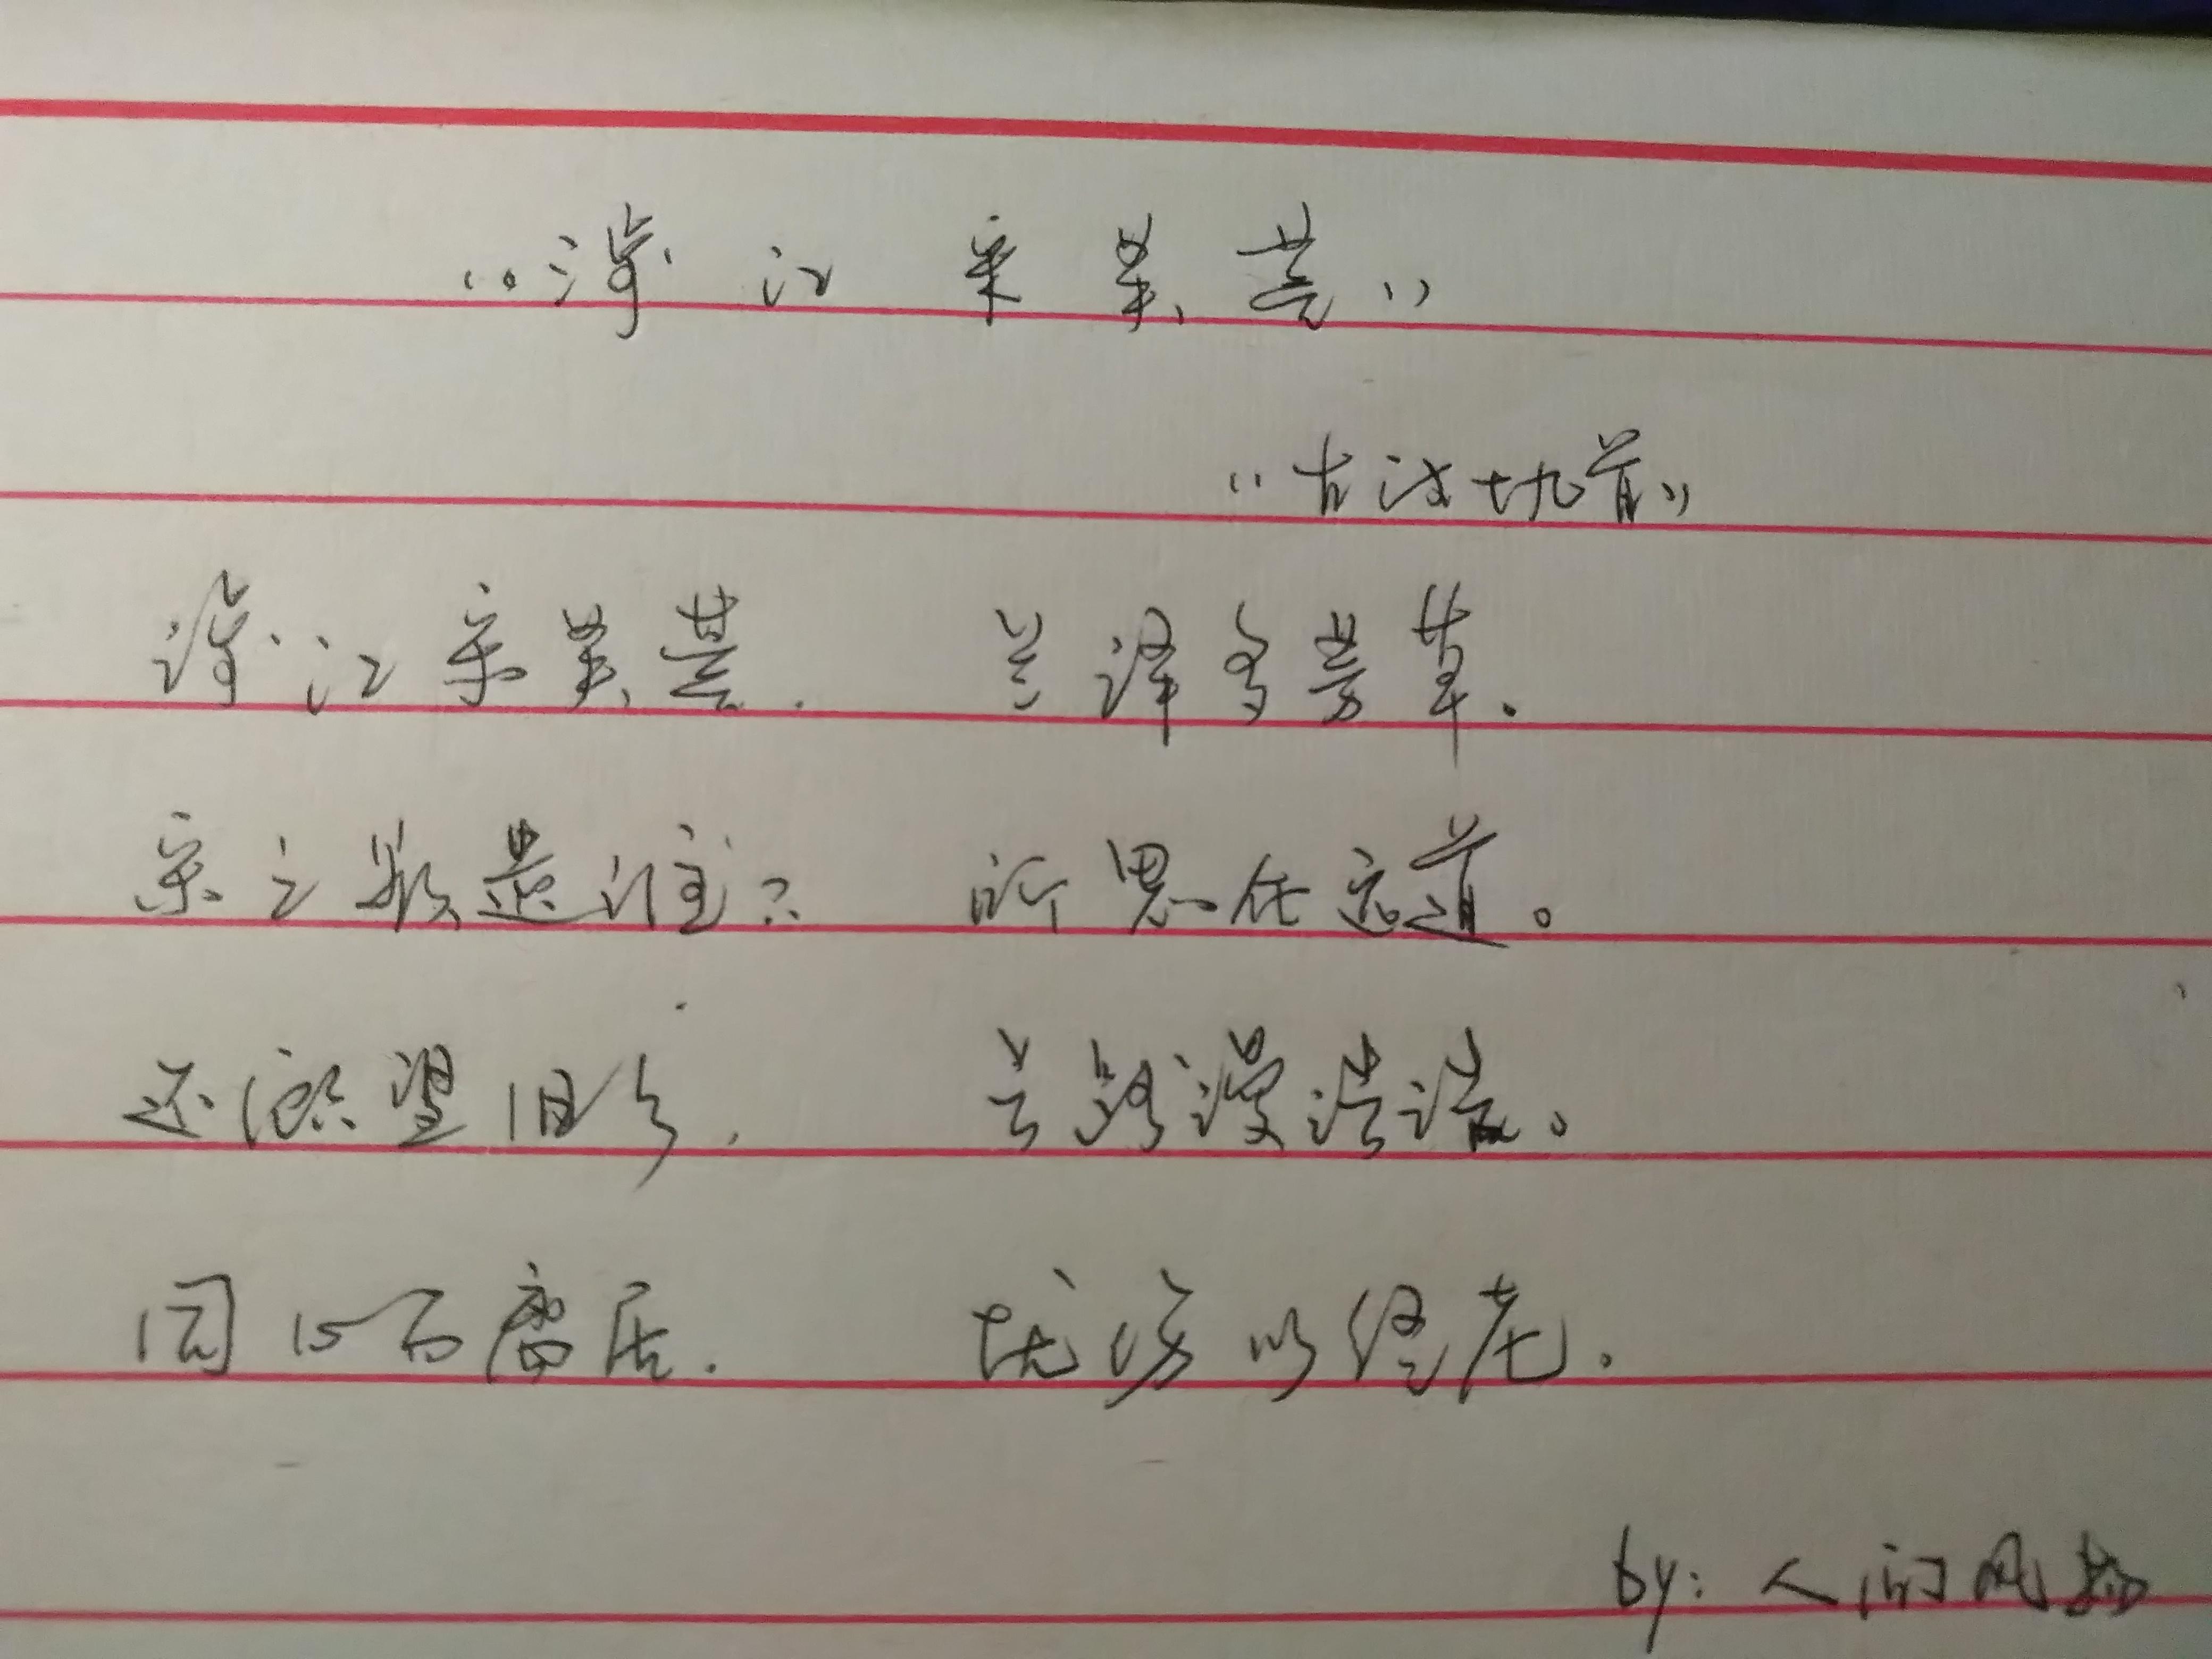 “涉江采芙蓉”
“古诗十九首”
涉江采芙蓉，兰泽多芳草。
采之欲遗谁？所思在远道。
还顾望旧乡，长路漫浩浩。
同心而离居，忧伤以终老。
by：人间风